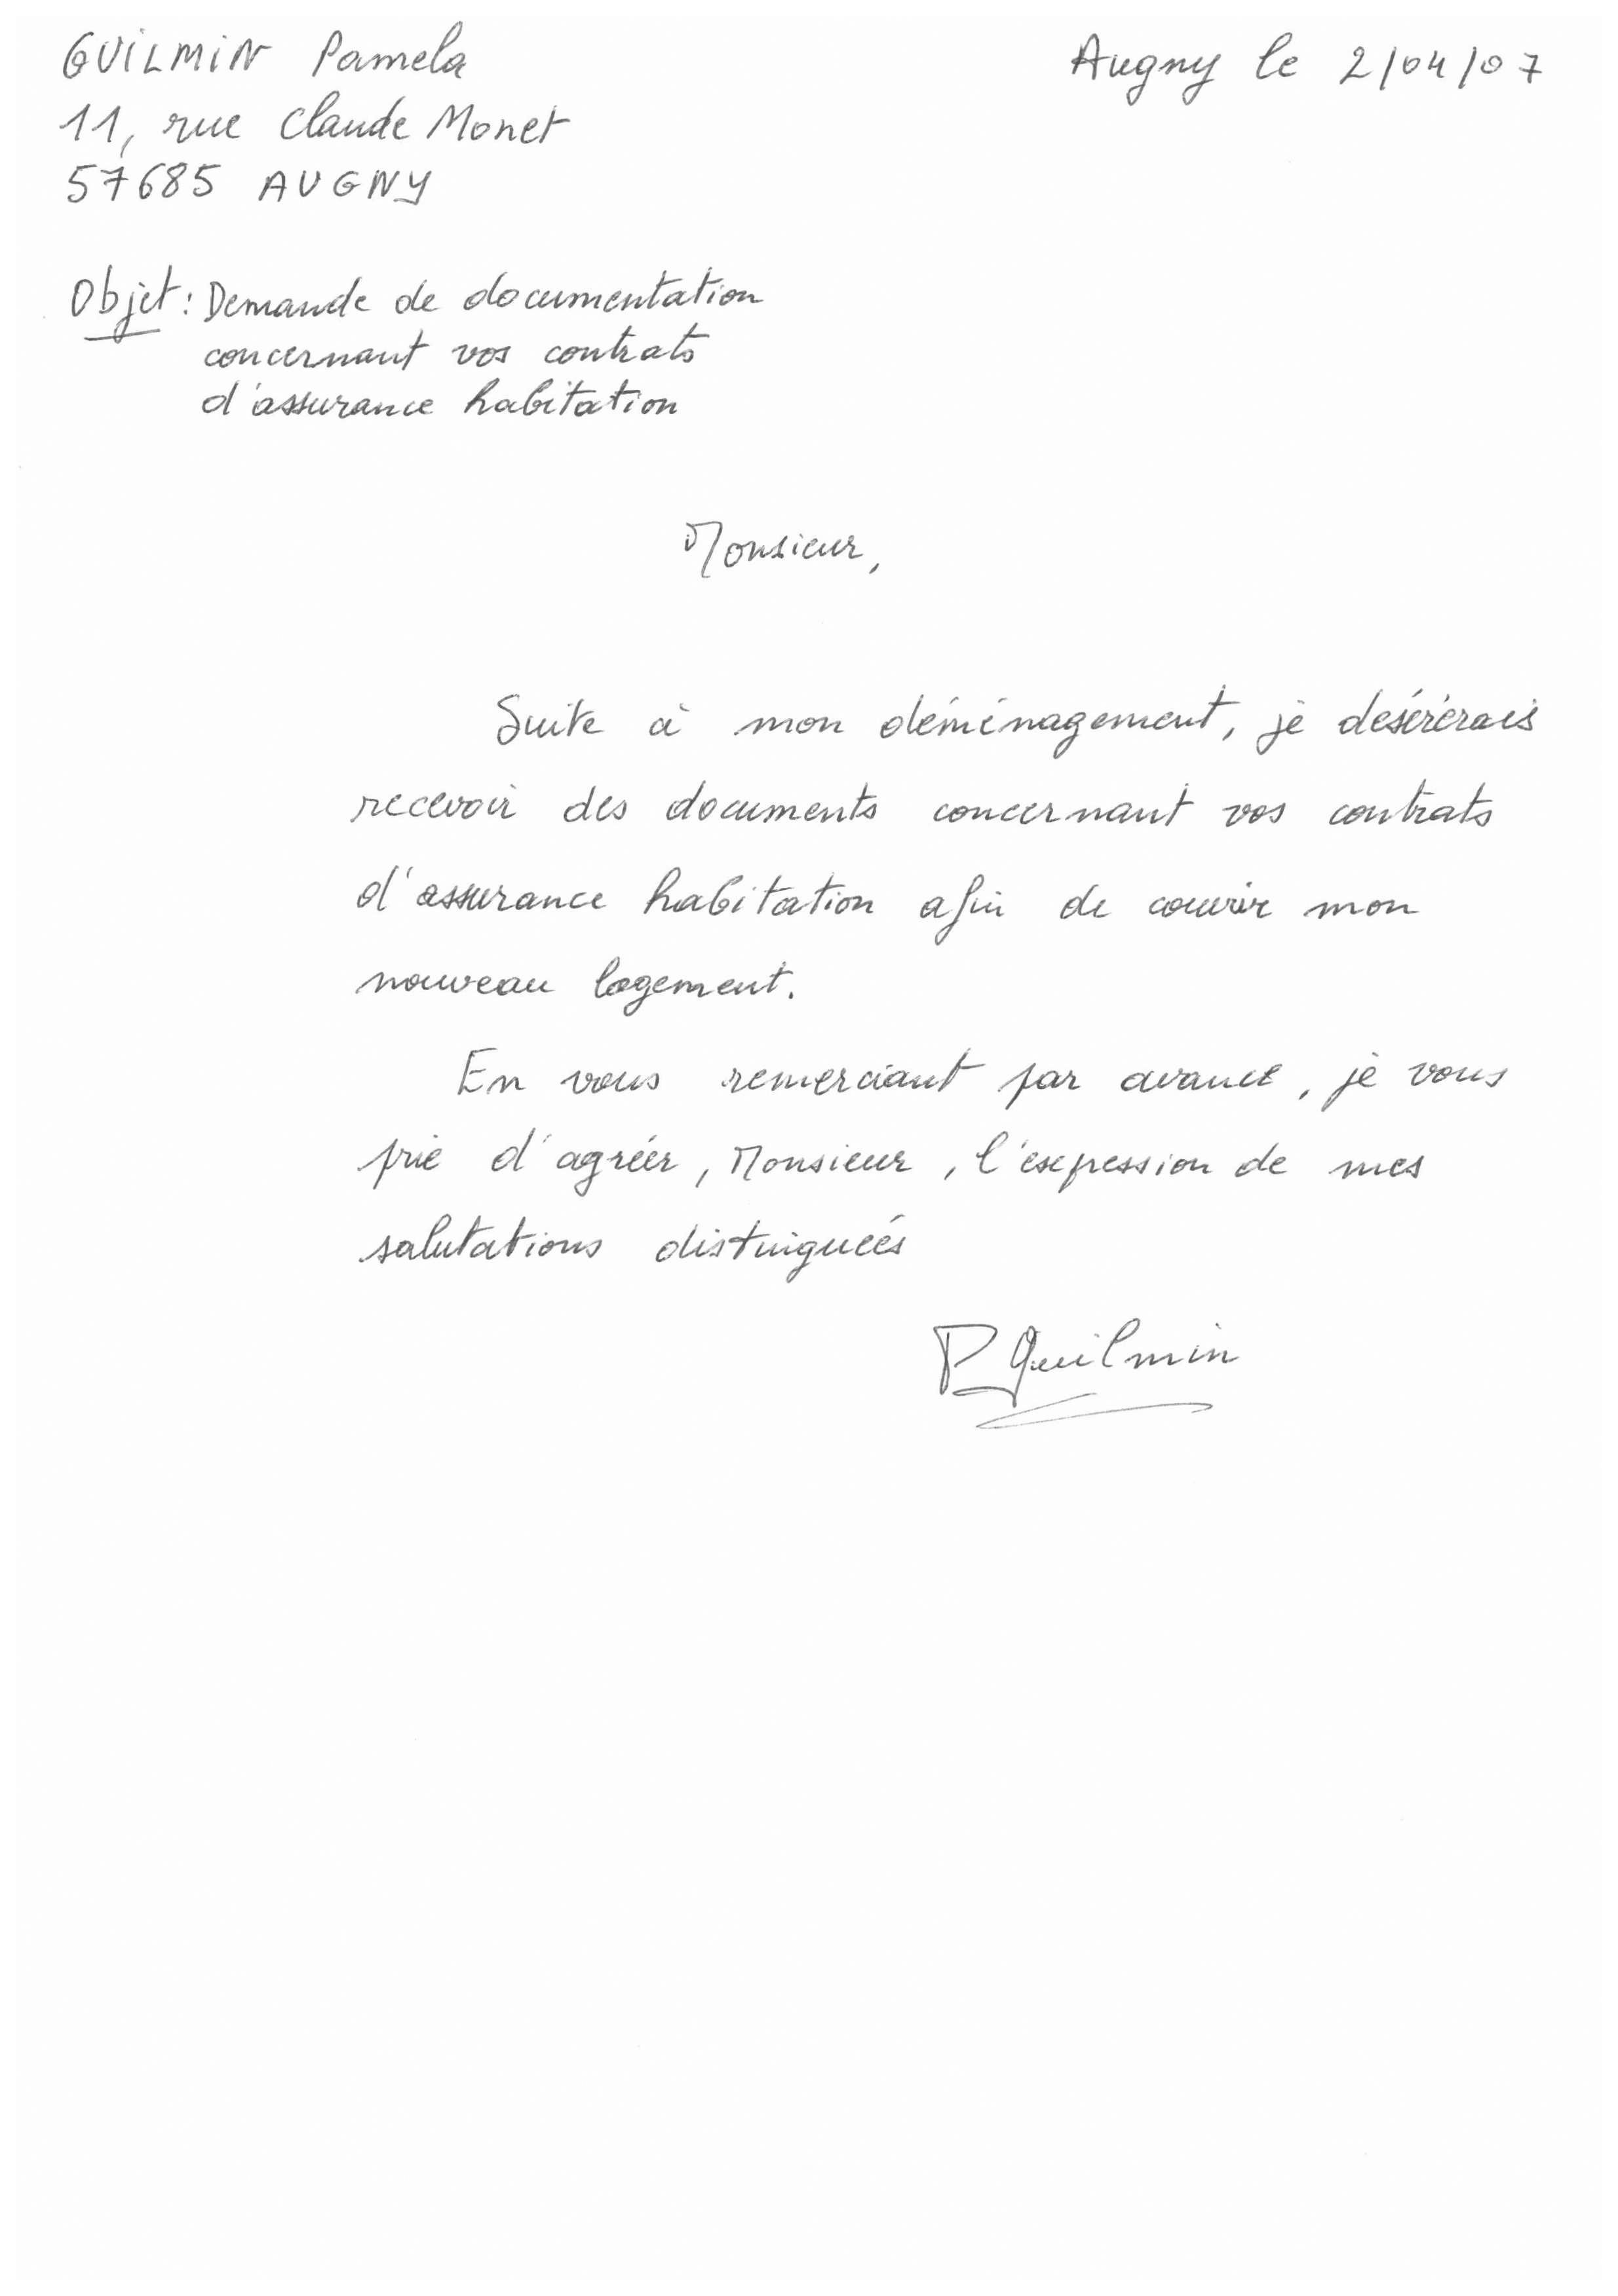 GUILMIN Pamela
Augny le 2/04/07
11, rue Claude Monet
57685 AUGNY
Objet : Demande de documentation
concernant vos contrats
d'assurance habitation
Monsieur,
Suite à mon déménagement, je désérerais
recevoir des documents concernant vos contrats
d'assurance habitation afin de couvrir mon
nouveau logement.
En vous remerciant par avance, je vous
prie d'agréer, Monsieur, l'expession de mes
salutations distinguées
P Guilmin